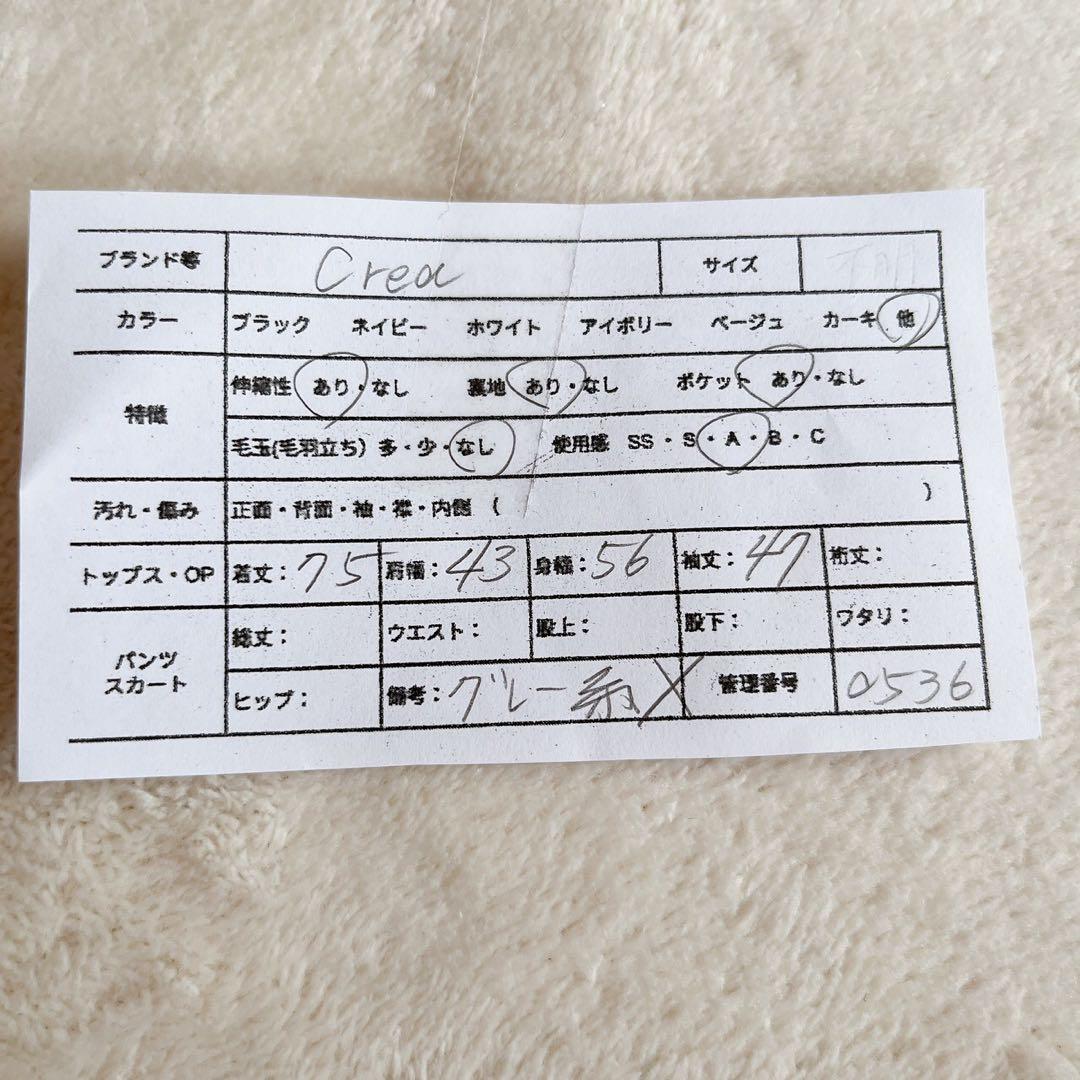 ブランド等 Crea サイズ 不明
カラー ブラック ネイビー ホワイト アイボリー ベージュ カーキ 他
特徴 伸縮性 あり・なし 裏地 あり・なし ポケット あり・なし
毛玉(毛羽立ち) 多・少・なし 使用感 SS・S・A・B・C
汚れ・傷み 正面・背面・袖・襟・内側 ( )
トップス・OP 着丈:75 肩幅:43 身幅:56 袖丈:47 裄丈:
パンツ スカート 総丈: ウエスト:股上: 股下: ワタリ:
ヒップ: 備考:グレー系 管理番号 0536